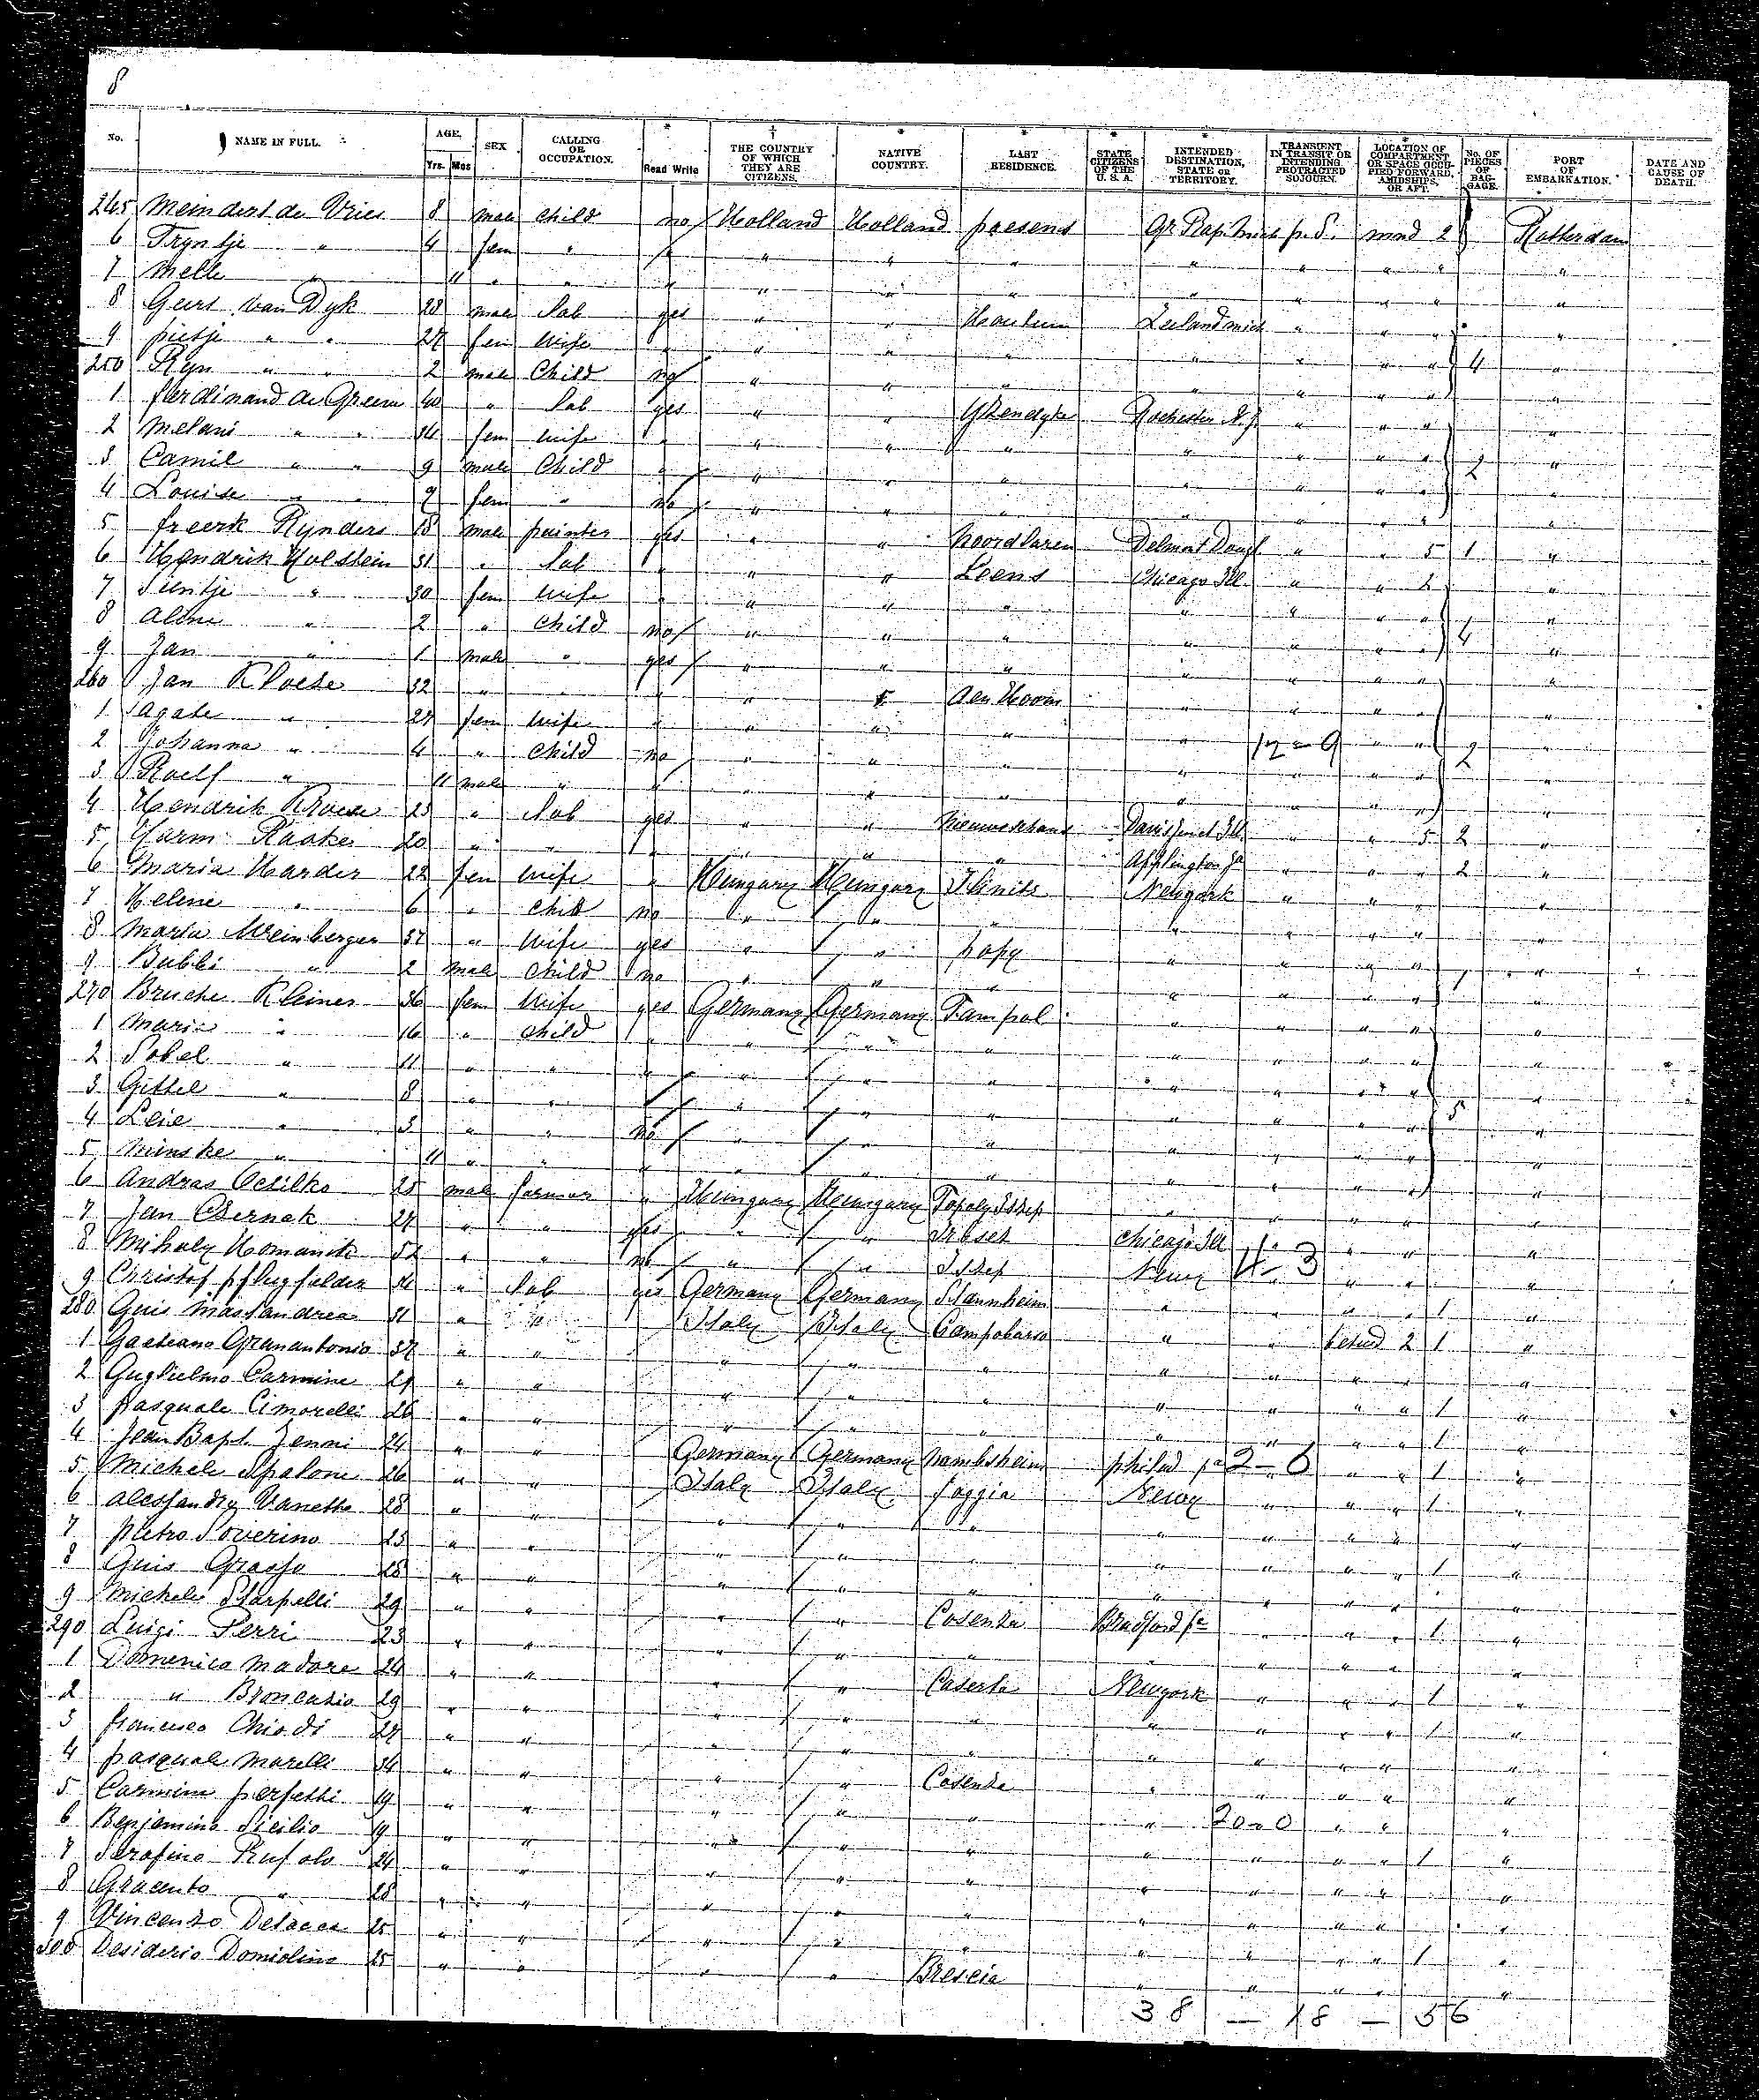 8
No. NAME IN FULL. AGE, Yrs. Mos SEX CALLING OR OCCUPATION. Read Write THE COUNTRY OF WHICH THEY ARE CITIZENS. NATIVE COUNTRY. LAST RESIDENCE. STATE CITIZENS OF THE U. S. A. INTENDED DESTINATION, STATE OR TERRITORY. TRANSIENT IN TRANSIT OR INTENDING PROTRACTED SOJOURN. LOCATION OF COMPARTMENT OR SPACE OCCUPIED FORWARD, AMIDSHIPS, OR AFT. NO. OF PIECES OF BAGGAGE. PORT OF EMBARKATION. DATE AND CAUSE OF DEATH.
245 Meindert de Vries 8 male child no Holland Holland paesens Gr Rap. Mich p. S. mnd 2 Rotterdam
6 Tryntje " 4 fem " " " " " " " " "
7 Melle " 11 " " " " " " " " " "
8 Geert van Dyk 28 male Lab yes " " Leeland mich " " " "
9 pietje " " 27 fem wife " " " " " " " " 4 "
250 Ryn " " 2 male Child no " " " " " " " "
1 ferdinand de 40 " Lab yes " " Yzendyke Rochester N.Y. " " " "
2 Melani " " 34 fem wife " " " " " " " " "
3 Camil " " 9 male Child " " " " " " " " 2 "
4 Louise " " 7 fem " no " " " " " " " "
5 freerk Rynders 18 male painter yes " " Noordlaren " " 5 1 "
6 Hendrik Holstein 31 " Lab " " " Leens Chicago Ill. " " 2 "
7 Sientje " 30 fem wife " " " " " " " " "
8 " 2 " child no " " " " " " " 4 "
9 Jan " 1 male " yes " " " " " " " "
260 Jan Kloese 32 " " " " " den Hoorn " " " " "
1 Agate " 27 fem wife " " " " " " " " "
2 Johanna " 4 " child no " " " " " " 2 "
3 Roelf " 11 male " " " " " " " " " "
4 Hendrik Kroese 23 " Lab yes " " Nieuweschans " " 5 2 "
5 Harm Raake 20 " " " " " " Applington Ja " " " 2 "
6 Maria Harder 22 fem wife " Hungary Hungary Newyork " " " "
7 Helene " 6 " child no " " " " " " " "
8 Maria Weinberger 37 " wife yes " " papa " " " " "
9 Bubbi " 2 male child no " " " " " " " 1 "
270 Bruche Kleiner 36 fem wife yes Germany Germany Tampol " " " " "
1 Marie " 16 " child " " " " " " " " "
2 Sobel " 11 " " " " " " " " " " "
3 Gittel " 8 " " " " " " " " " " 5 "
4 Leie " 3 " " no " " " " " " " "
5 Minske " 11 " " " " " " " " " " "
6 Andras 25 male farmer " Hungary Hungary " " " " "
7 Jan Csernak 27 " " yes " " Chicago Ill " " " "
8 Mihaly 52 " " no " " Newy 4 - 3 " " "
9 Christof pflugfelder 31 " Lab yes Germany Germany Mannheim " " " 1 "
280 Guis Massandrea 31 " " Italy Italy Campobasso " " behd 2 1 "
1 Gaeteano Granantonio 37 " " " " " " " " " "
2 Guglielmo Carmine 29 " " " " " " " " " "
3 pasquale Cimorelli 26 " " " " " " " " " 1 "
4 Jean Bapt. Jenni 24 " " Germany Germany Nambsheim philad pa 2 - 6 " " 1 "
5 Michele Spalone 26 " " Italy Italy foggia Newy " " " 1 "
6 Alessandro Vanetta 28 " " " " " " " " " "
7 pietro Soverino 23 " " " " " " " " " 1 "
8 Guis Grasso 28 " " " " " " " " " "
9 Michele Scarpelli 29 " " " " Cosenza Bradford pa " " " 1 "
290 Luigi Perri 23 " " " " " " " " " "
1 Domenico Madore 24 " " " " Caserta Newyork " " " 1 "
2 " Broncasio 29 " " " " " " " " " 1 "
3 francesco Chiodi 27 " " " " " " " " " "
4 pasquale Marelli 34 " " " " Cosenza " " " " "
5 Carmine perfetti 19 " " " " " " 20 - 0 " " "
6 Benjamino Sicilio 19 " " " " " " " " " 1 "
7 Serafino Rufolo 24 " " " " " " " " " "
8 " 28 " " " " " " " " " "
9 Vincenzo 25 " " " " " " " " " 1 "
300 Desiderio Domiolino 25 " " " " Brescia " " " " "
38 — 18 — 56